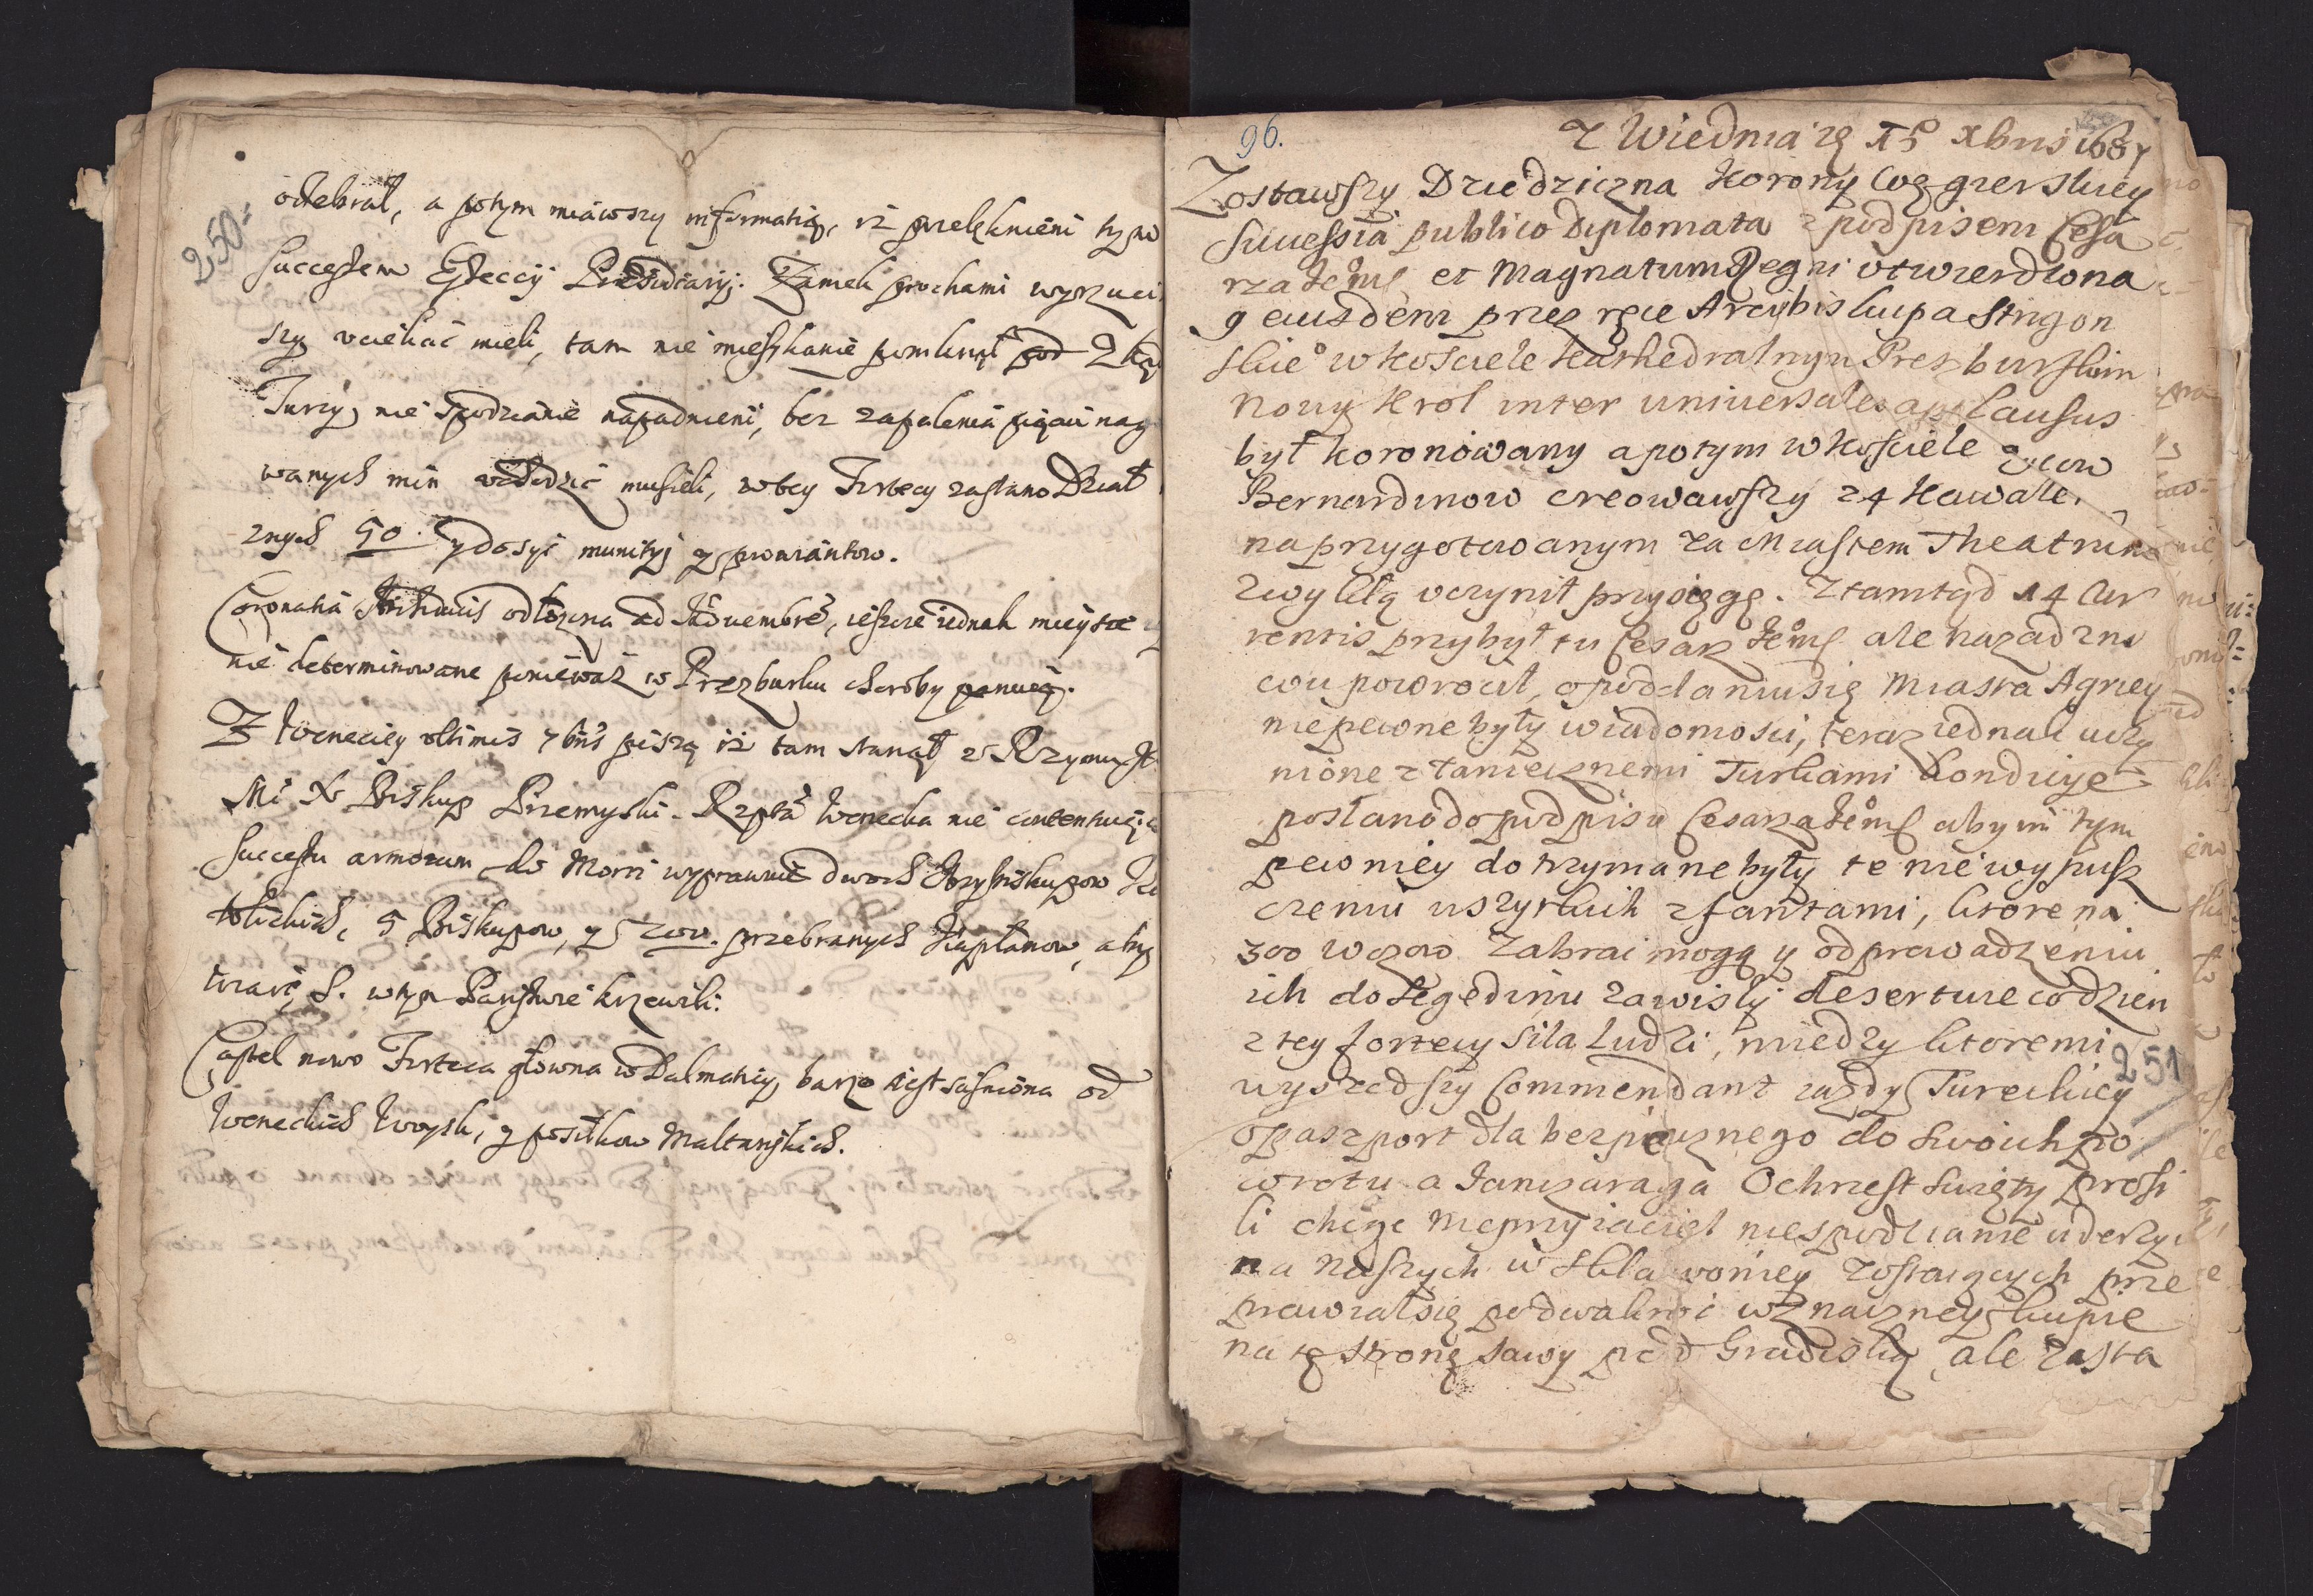 250=
odebrał, a potym miawszy informatią, iz przelęknieni tym
successem Esseccij Praesidiarij. Zamek prochami wyrzuci
szy uciekać mieli, tam nie mieszkanie pomknął pod
Turcy, nie spodzianie napadnieni, bez zapalenia piąciu nag
wanych min uchodzić musieli, w tey Fortecy zastano Dział
znych 50. y dosyć munitij y prowiantow.
Coronatia Archiducis odłozona ad Novembre, ieszcze iednak mieysce
nie determinowane poniewaz w Prezburku choroby panuią.
Z Weneciey ultimis 7bris piszą iz tam stanął z Rzymu
Mć X Biskup Przemyski. Rzptā Wenecka nie contentuiąc
Successu armorum do Morri wyprawuie dwoch Arcybiskupow Ka
tholickich, 5 Biskupow, y przebranych Kapłanow, aby
wiarę S. w tym Państwie krzewili.
Castel nowo Forteca głowna w Dalmatiey barzo iest sciśniona od
Weneckich Woysk, y posiłkow Maltanskich.
96.
Z Wiednia 15 Xbris 1687
Zostawszy Dziedziczna Korony Węgierskiey
Successia publico Diplomata z podpisem Cesa
rza Jeoms et Magnatum Regni utwierdzona
9 eiusdem przez ręce Arcybiskupa Strigon
skieo w kościele Kathedralnym Prezburskim
Nowy Krol inter universales applausus
był koronowany a potym w kościele oycow
Bernardinow creowawszy 24 Kawale.
na przygotowanym za Miastem Theatrum
zwykłą uczynił przysięgę. Ztamtąd 14 Cur
rentis przybył tu Cesarz Jeoms ale nazad zno
wu powrocił, o poddaniu się Miasta Agriey
niepewne były wiadomości, teraz iednak uczy
nione z tamecznemi Turkami kondicye
posłano do podpisu Cesarza Jeoms aby im tym
pewniey dotrzymane były te nie wypusz
czeniu uszystkich z fantami, ktore na
300 wozow zabrać mogą y odprowadzeniu
ich do Segedinu zawisły deserture codzien
z tey fortecy siła Ludzi, miedzy ktoremi
251
wyszedszy Commendant iazdy Tureckiey
o paszport dla bezpiecznego do swoich po
wrotu a Janczaraga o Chrzest Swięty prosi
li chcąc Nieprzyiaciel niespodzianie uderzyć
na Naszych w Sklawoniey zostaiących prze
prawiał się pod walkowi w znaczney kupie
na tę stronę Sawy pod Gradiską, ale zasta